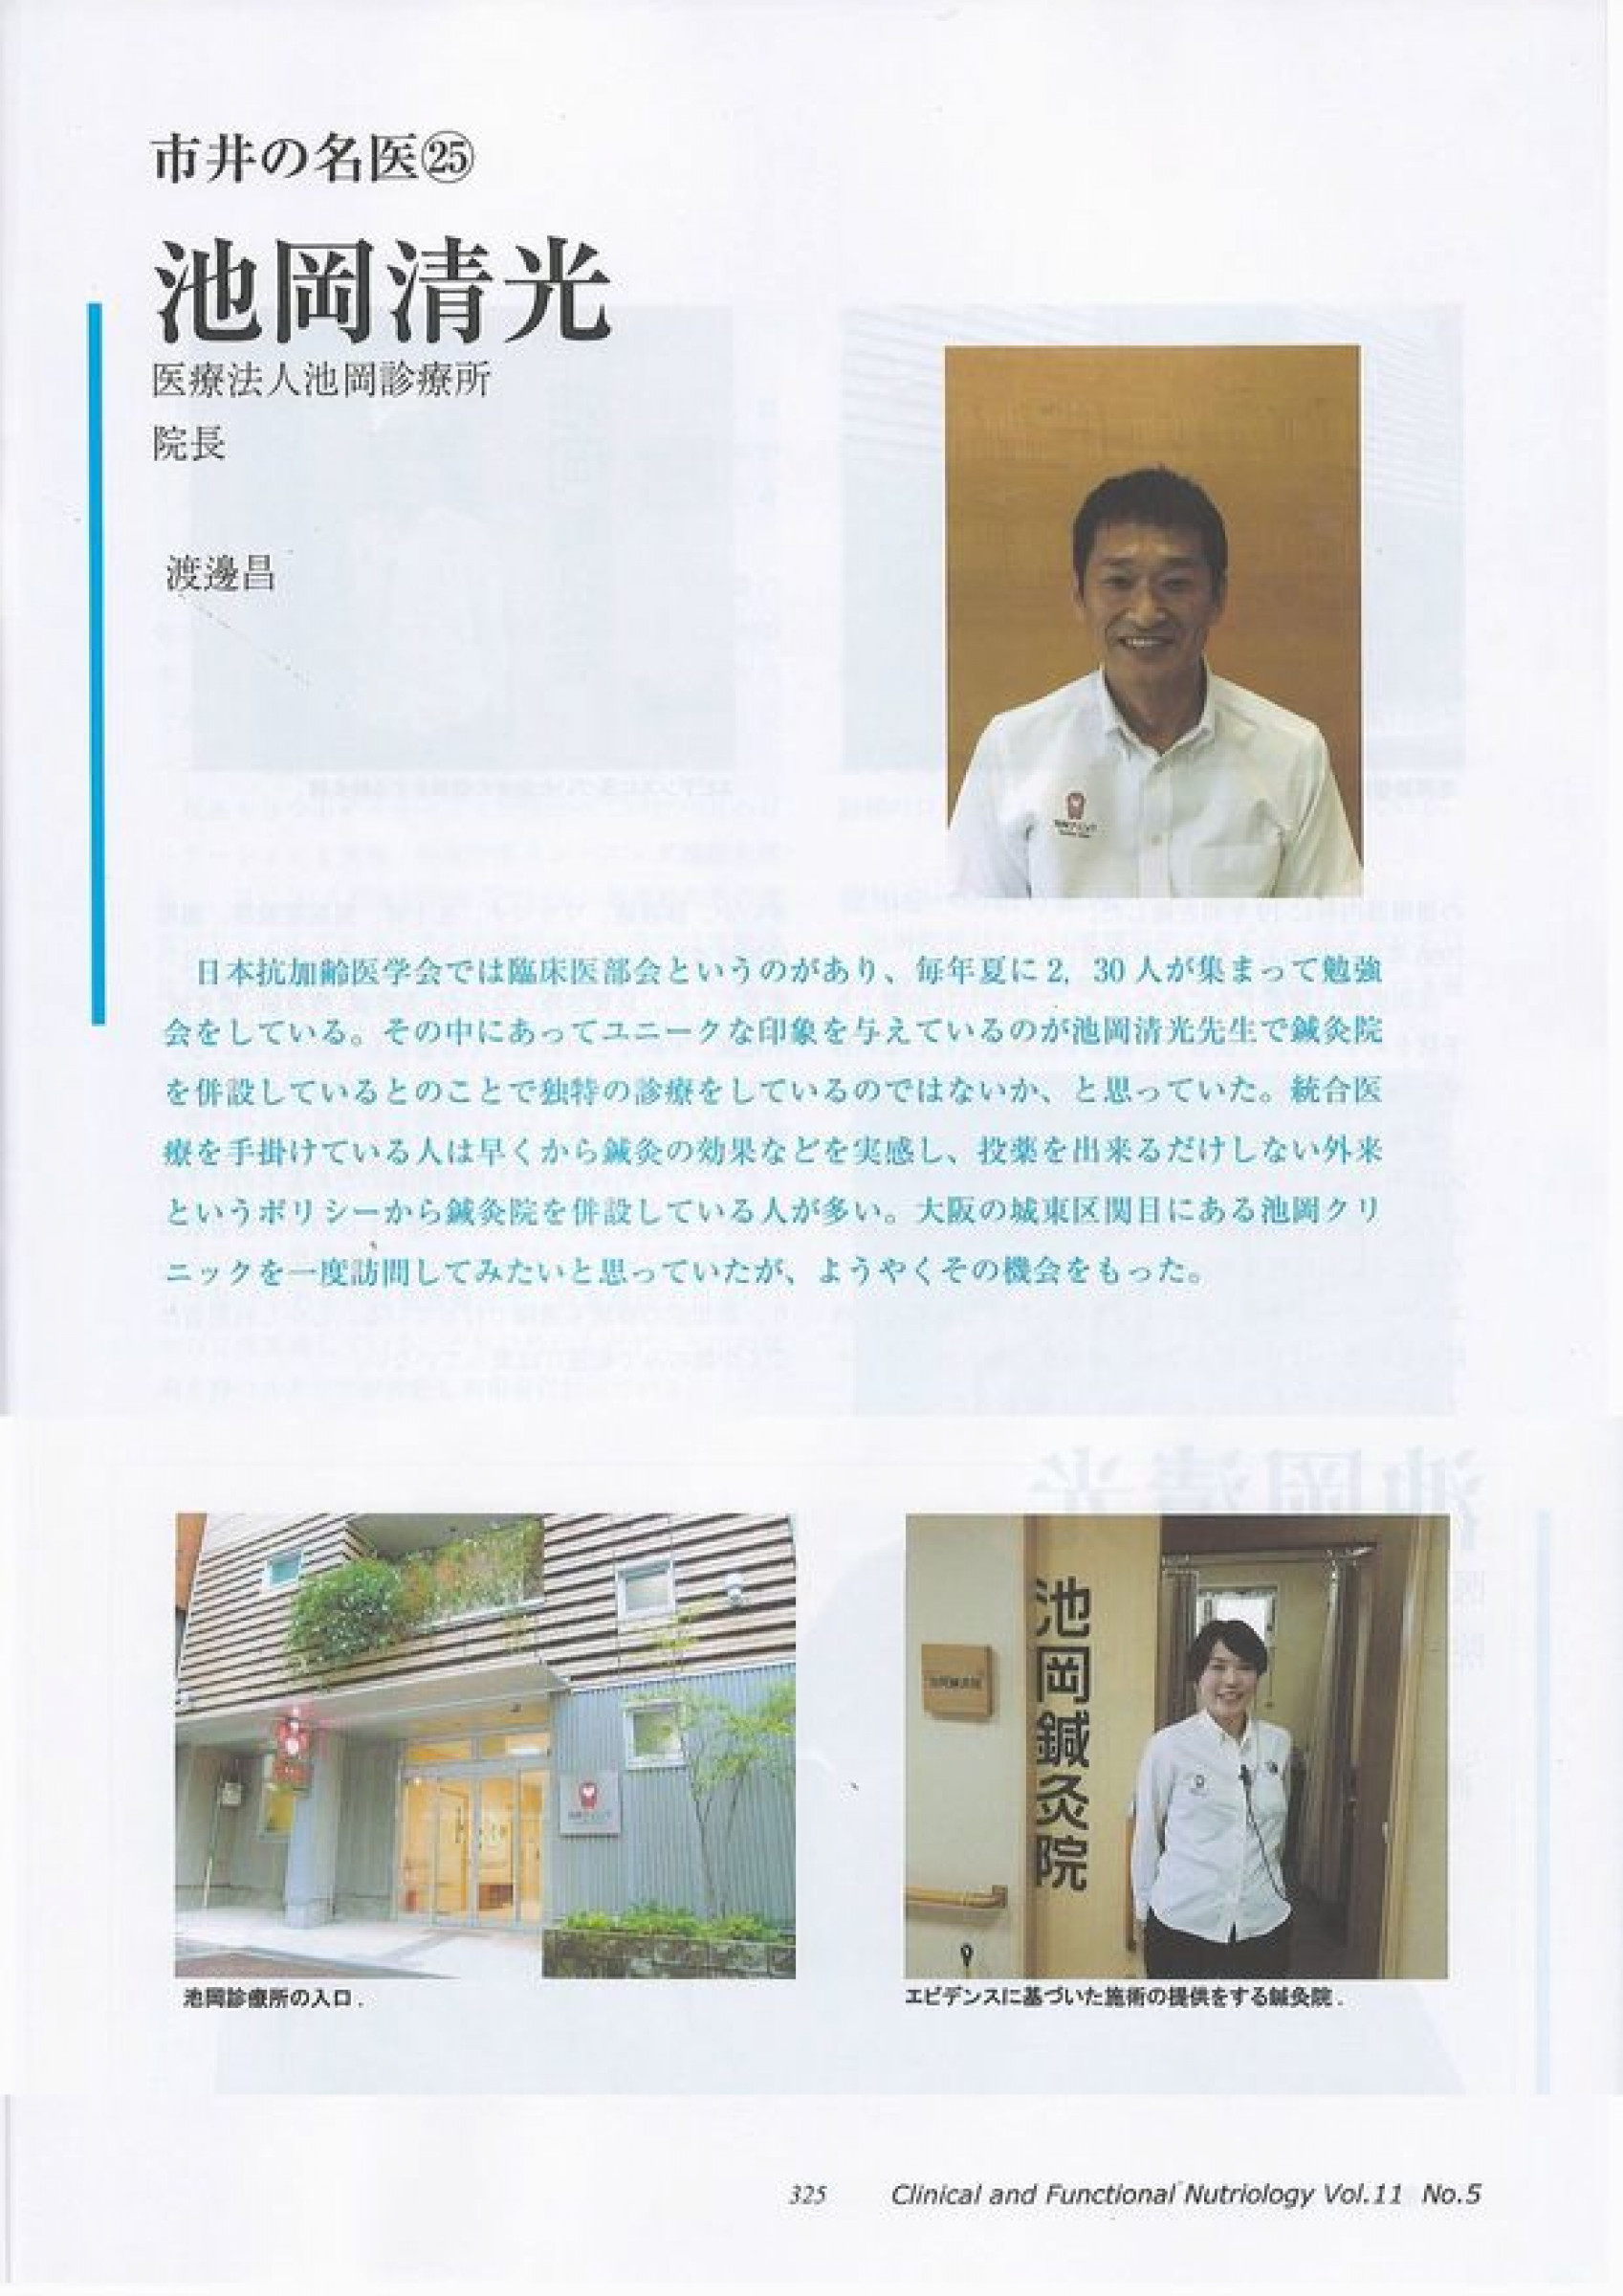 市井の名医㉕
池岡清光
医療法人池岡診療所
院長
渡邊昌
日本抗加齢医学会では臨床医部会というのがあり、毎年夏に2, 30人が集まって勉強
会をしている。その中にあってユニークな印象を与えているのが池岡清光先生で鍼灸院
を併設しているとのことで独特の診療をしているのではないか、と思っていた。統合医
療を手掛けている人は早くから鍼灸の効果などを実感し、投薬を出来るだけしない外来
というポリシーから鍼灸院を併設している人が多い。大阪の城東区関目にある池岡クリ
ニックを一度訪問してみたいと思っていたが、ようやくその機会をもった。
池岡鍼灸院
池岡鍼灸院
池岡診療所の入口．
エビデンスに基づいた施術の提供をする鍼灸院．
325 Clinical and Functional Nutriology Vol.11 No.5